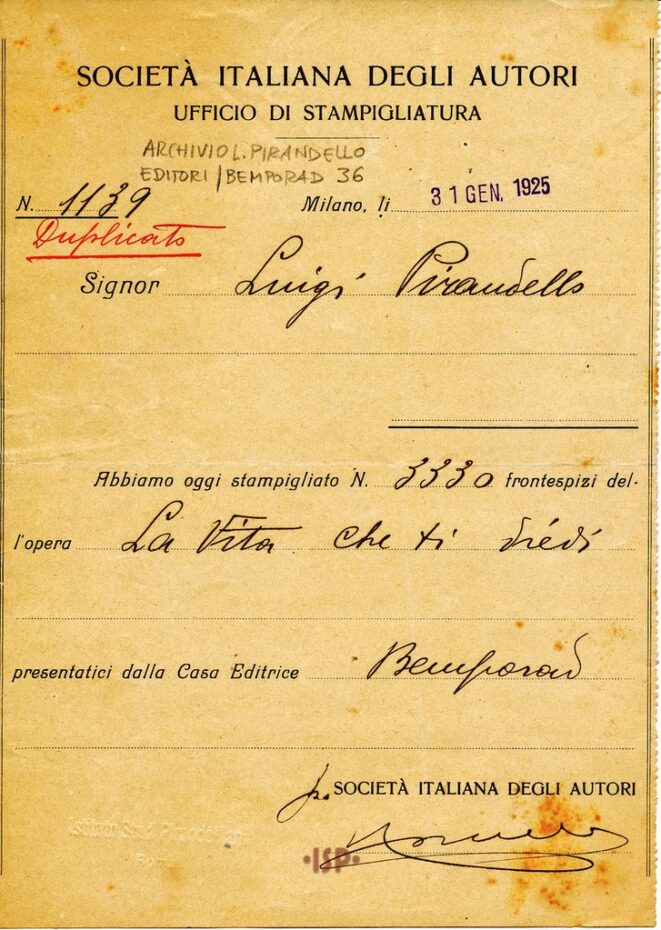 SOCIETÀ ITALIANA DEGLI AUTORI
UFFICIO DI STAMPIGLIATURA
ARCHIVIO L. PIRANDELLO
EDITORI / BEMPORAD 36
N. 1139 Milano, li 31 GEN. 1925
Duplicato
Signor Luigi Pirandello
Abbiamo oggi stampigliato N. 3330 frontespizi del-
l'opera La Vita che ti diedi
presentatici dalla Casa Editrice Bemporad
p. SOCIETÀ ITALIANA DEGLI AUTORI
·ISP·